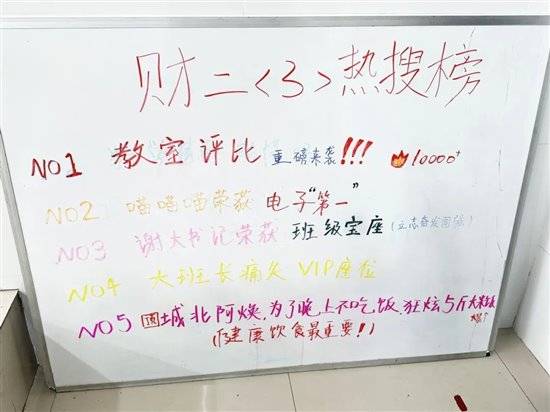 财二<3>热搜榜
NO1 教室评比 重磅来袭!!! 10000+
NO2 喵喵喵荣获 电子"第一"
NO3 谢大书记荣获 班级宝座(立志奋发图强)
NO4 大班长痛失 VIP座位
NO5 圆城北阿焕,为了晚上不吃饭,狂炫5斤大米
(健康饮食最重要!)